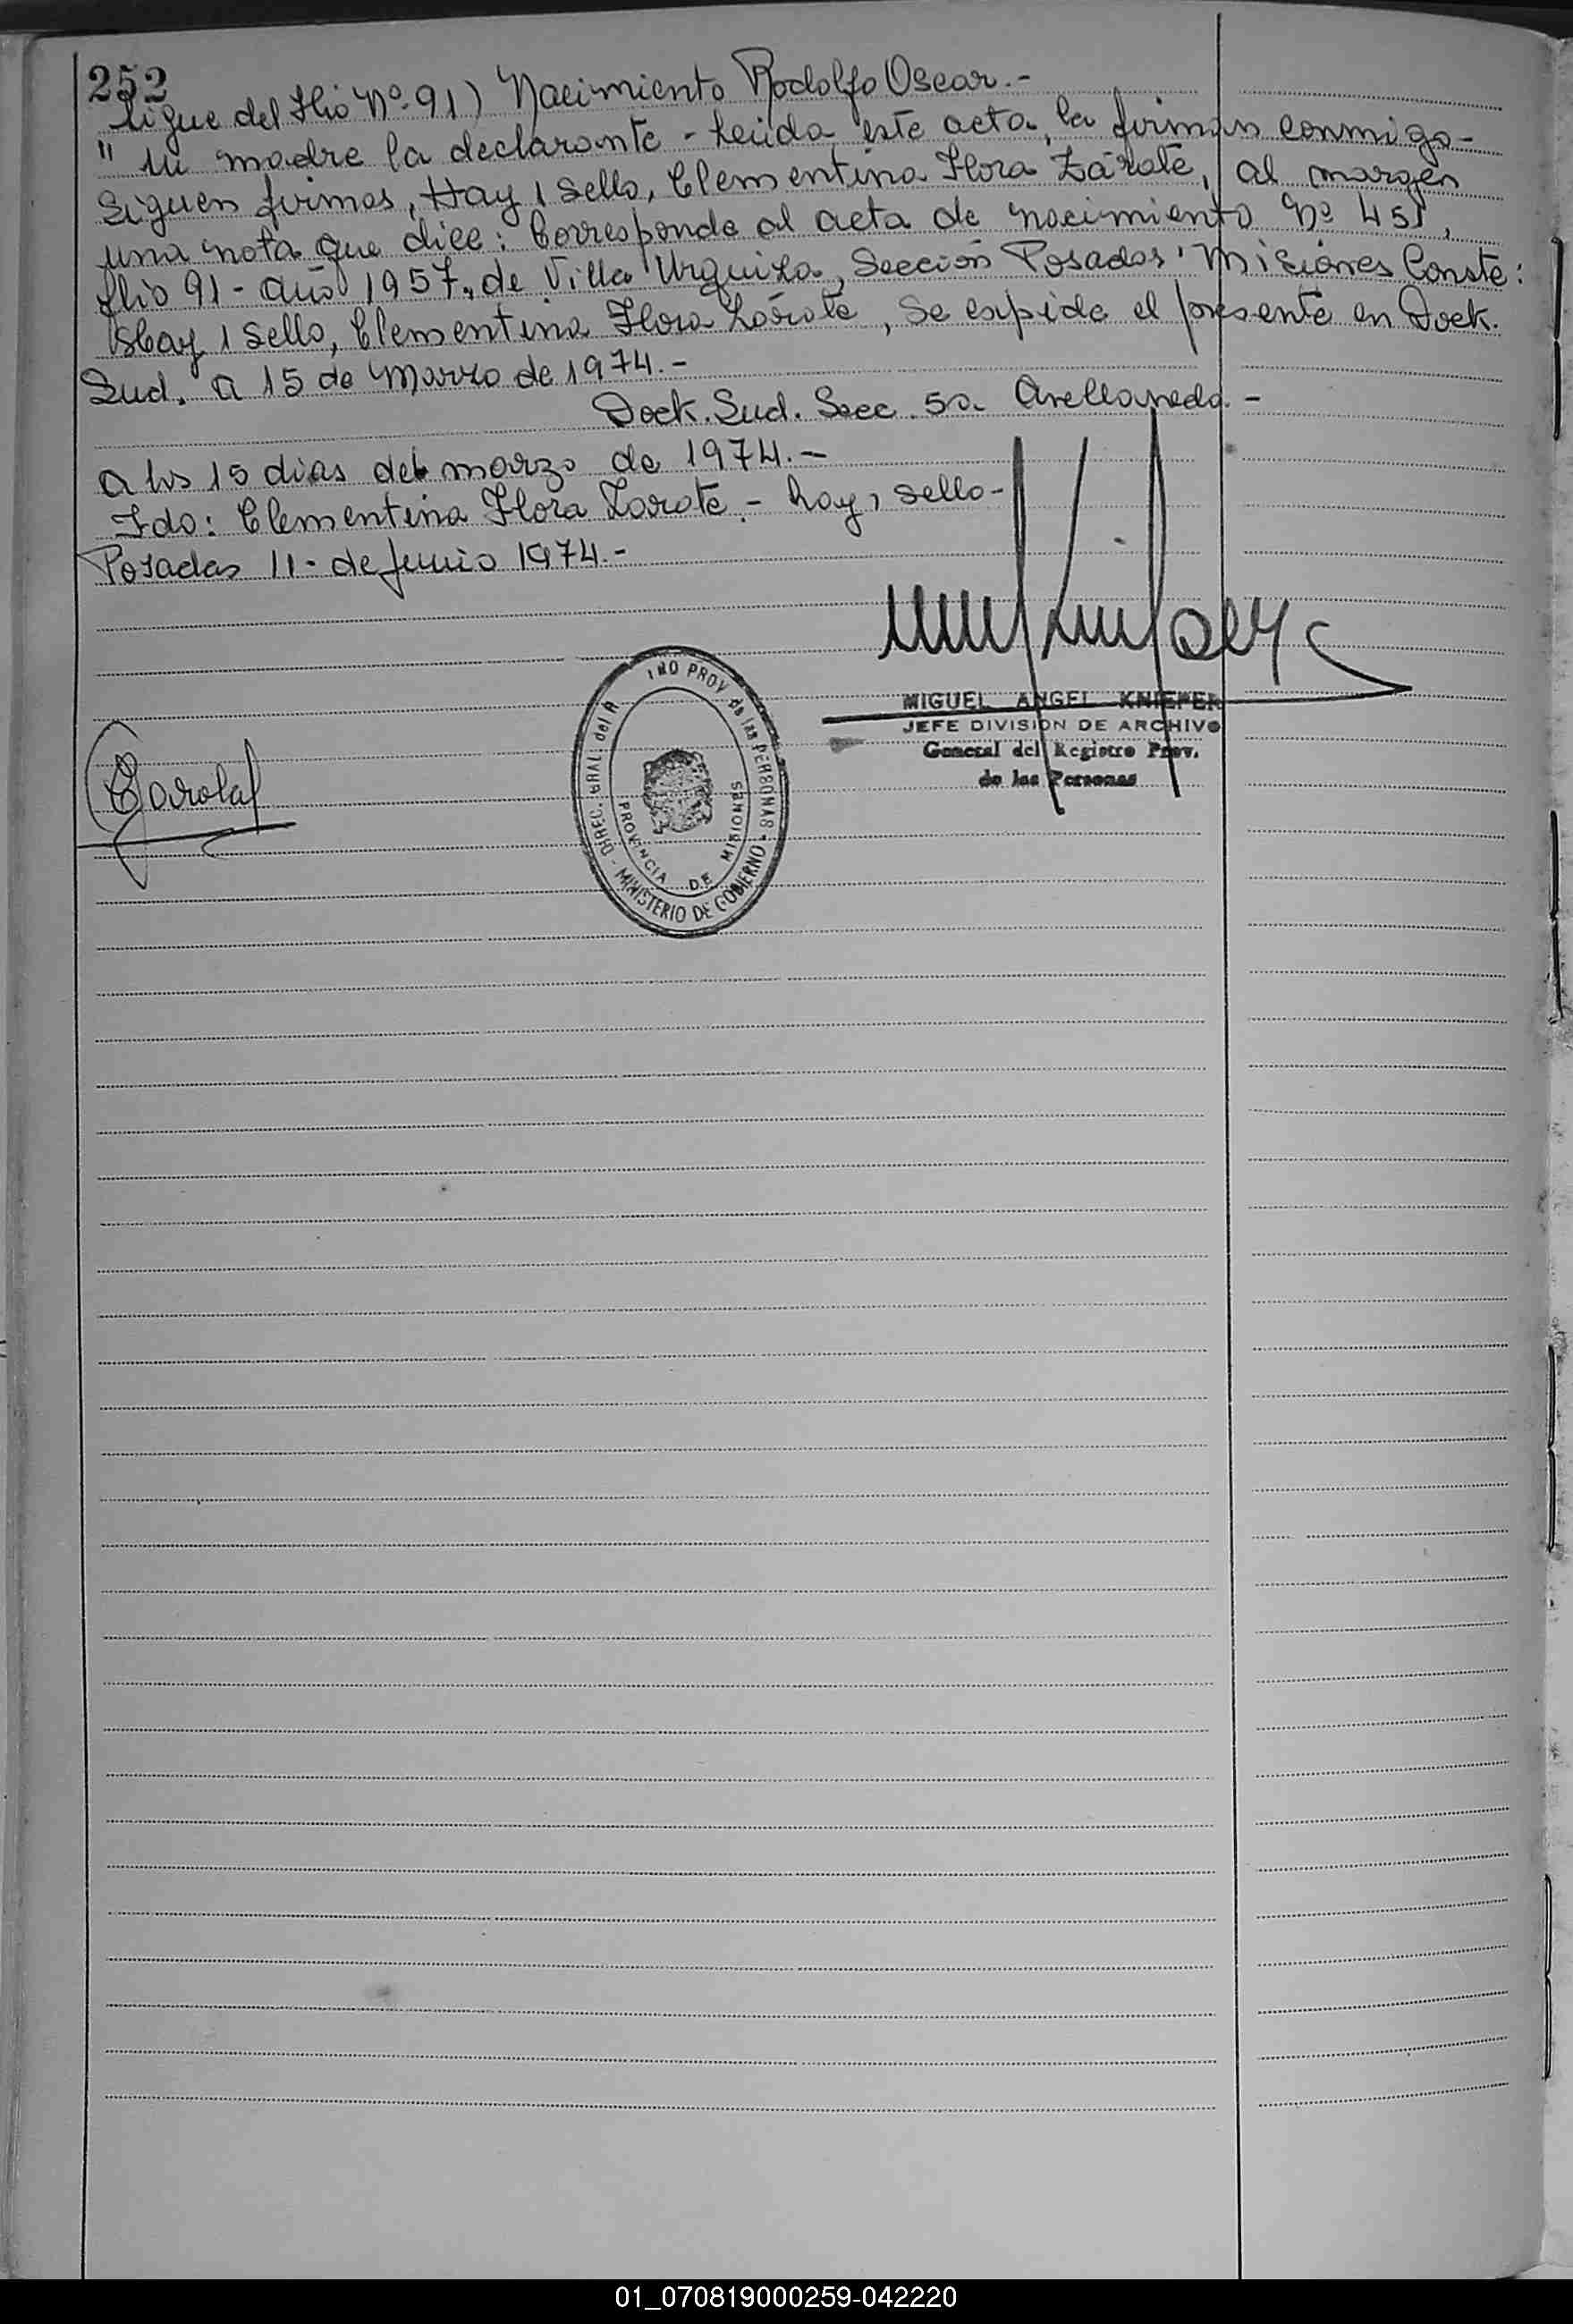 252
Sigue del flio Nº 91) Nacimiento Rodolfo Oscar.-
" su madre la declarante - Leida este acta, la firman conmigo-
Siguen firmas, Hay 1 sello, Clementina Flora Zárate, al margen
una nota que dice: Corresponde al acta de nacimiento Nº 451,
flio 91 - año 1957, de Villa Urquiza, Sección Posadas, Misiones Conste:
Hay 1 sello, Clementina Flora Zárate, Se expide el presente en Dock.
Sud. a 15 de Marzo de 1974.-
Dock. Sud. Secc. 5a. Avellaneda.-
a los 15 dias del marzo de 1974.-
Fdo: Clementina Flora Zarate.- hay 1 sello-
Posadas 11- de Junio 1974.-
MIGUEL ANGEL KNIEPER
JEFE DIVISION DE ARCHIVO
General del Registro Prov.
de las Personas
DIREC. GRAL. del R PROV. de las PERSONAS - MINISTERIO DE GOBIERNO -
PROVINCIA DE MISIONES
01_070819000259-042220